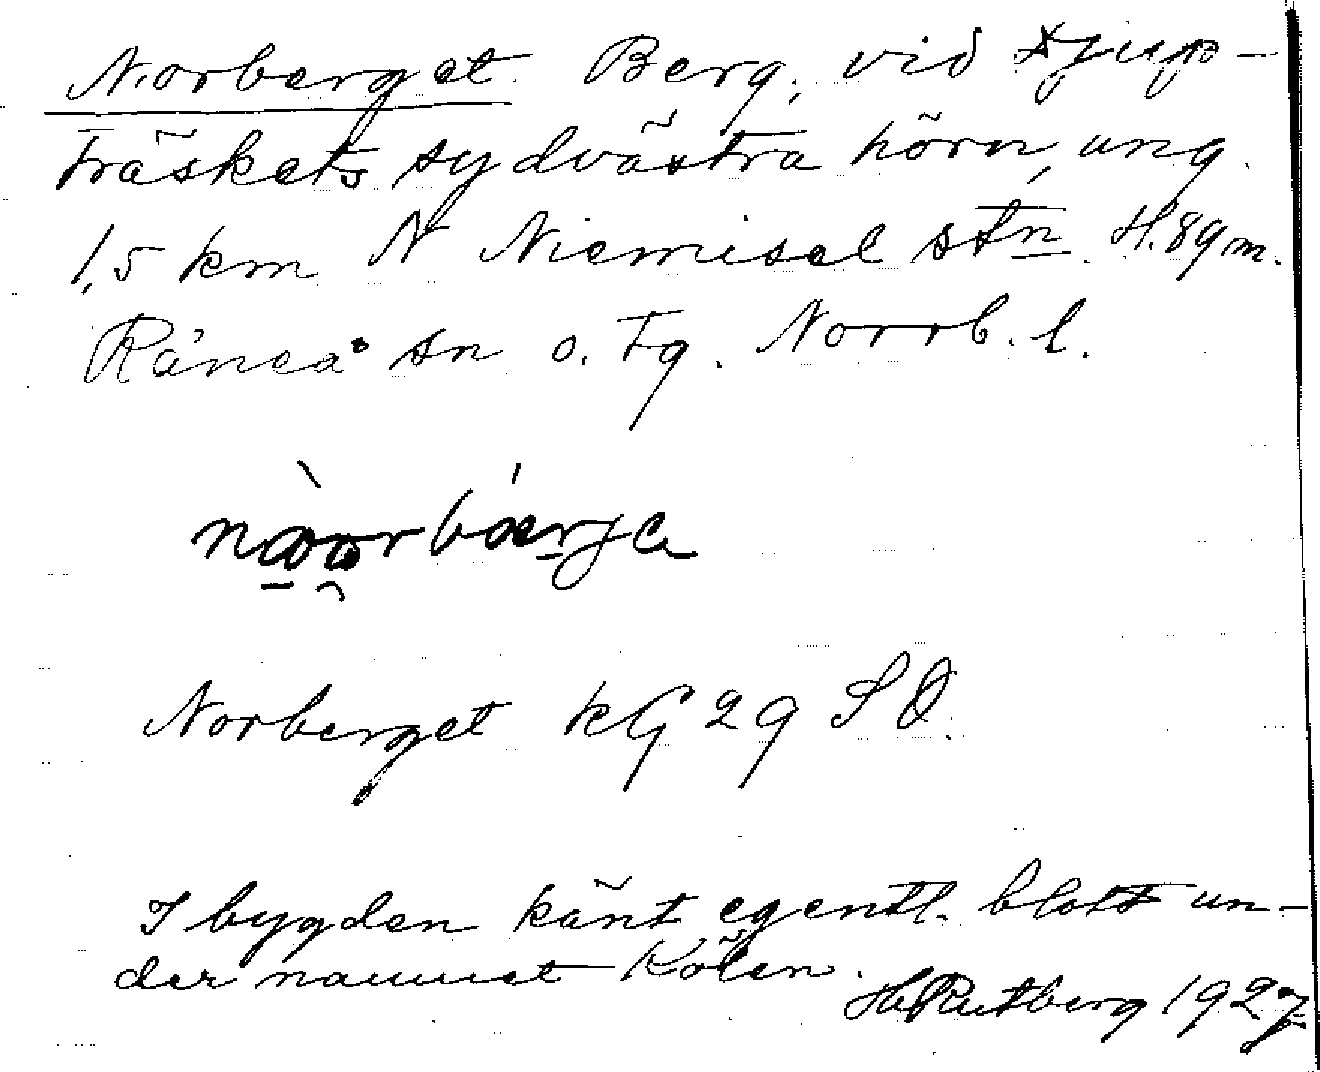 Norberget. Berg, vid Djup-
träskets sydvästra hörn, ung.
1,5 km N Niemisel stn. H. 89 m.
Råneå sn o. tg. Norrb. l.
Norberget kG 29 SO.
I bygden känt egentl. blott un-
der namnet Kölen.
H Rutberg 1927